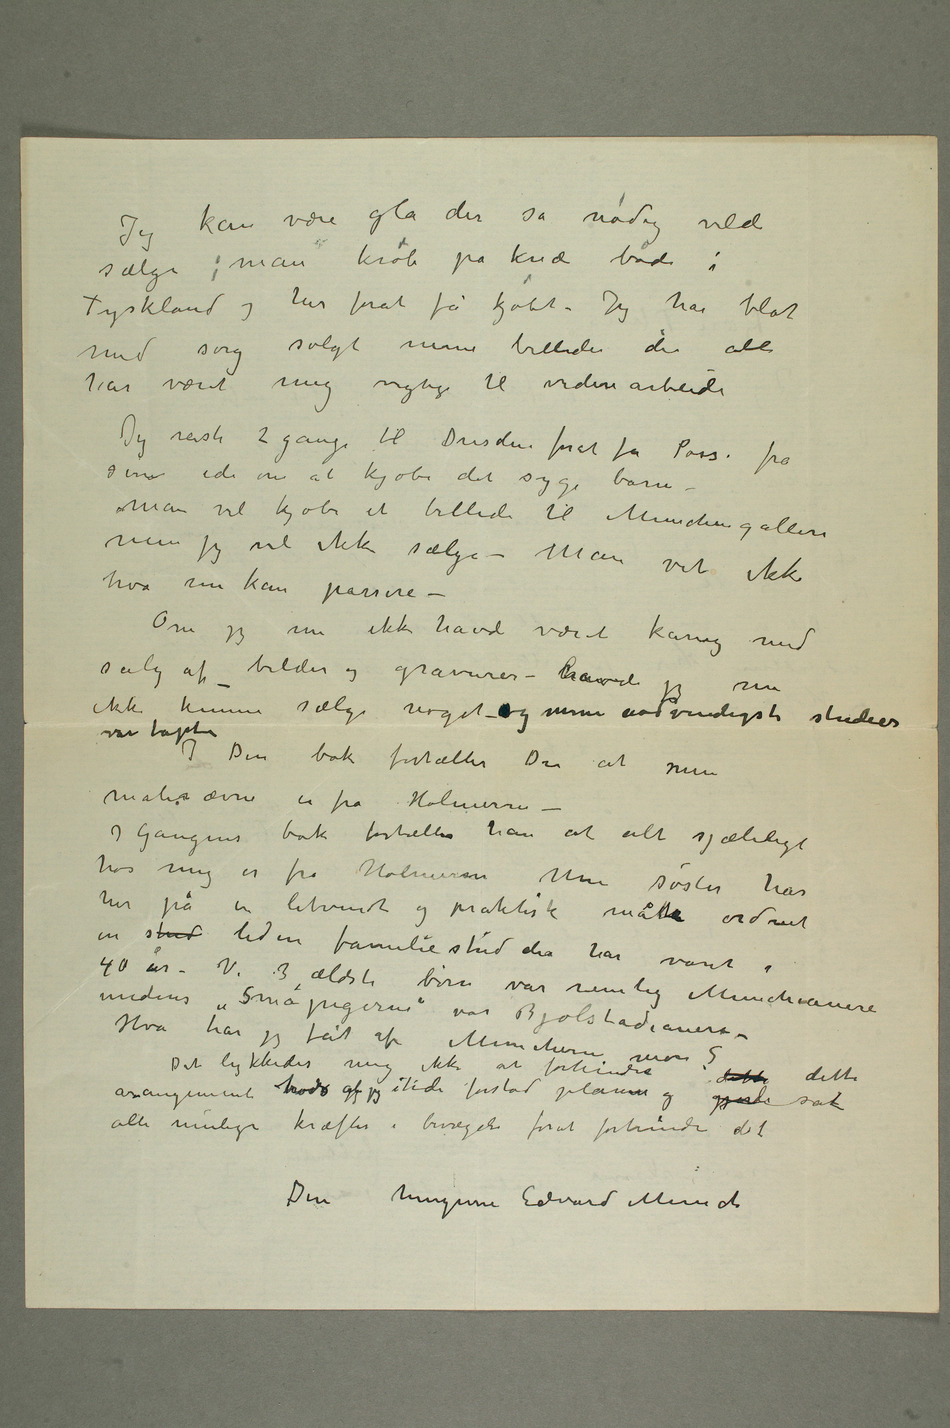 Jeg kan være gla der så nødig vilde
sælge; man krøb på knæ både i
Tyskland og her forat få kjøbt – Jeg har blot
med sorg solgt mine billeder der alle
har været mig vigtige til viderearbeide
Jeg reiste 2 gange til Dresden forat få Poss. fra
sin ide om at kjøbe det syge barn –
man vil kjøbe et billede til Münchengalleri
men jeg vil ikke sælge – Man vet ikke
hva nu kan passere –
Om jeg nu ikke havde været karrig med
salg af billeder og gravurer – havde jeg nu
ikke kunne sælge noget – og mine nødvendigste studier
var tapte
I Din bok fortæller Du at min
maleævne er fra Holmerne –
I Gauguins bok fortelles han at alt sjæleligt
hos mig er fra Holmerne Min søster har
her på en letvindt og praktisk måte ordnet
en strid liden familiestrid der har varet i
40 år – Vi 3 ældste børn var nemlig Munchianere
medens „Småpigerne" var Bjølstadianere –
Hva har jeg fåt af Muncherne mon?
Det lykkedes mig ikke at forhindre dette dette
arangement trods at jeg itide forstod planen og gjorde sat
alle mulige kræfter i bevægelse forat forhindre det
Din hengivne Edvard Munch